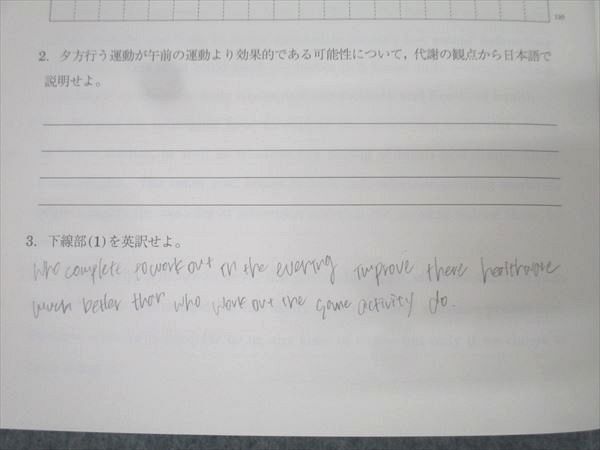 180
2. 夕方行う運動が午前の運動より効果的である可能性について，代謝の観点から日本語で
説明せよ。
3. 下線部(1)を英訳せよ。
Who complete to work out in the evening improve there health
much better than who work out the same activity do.